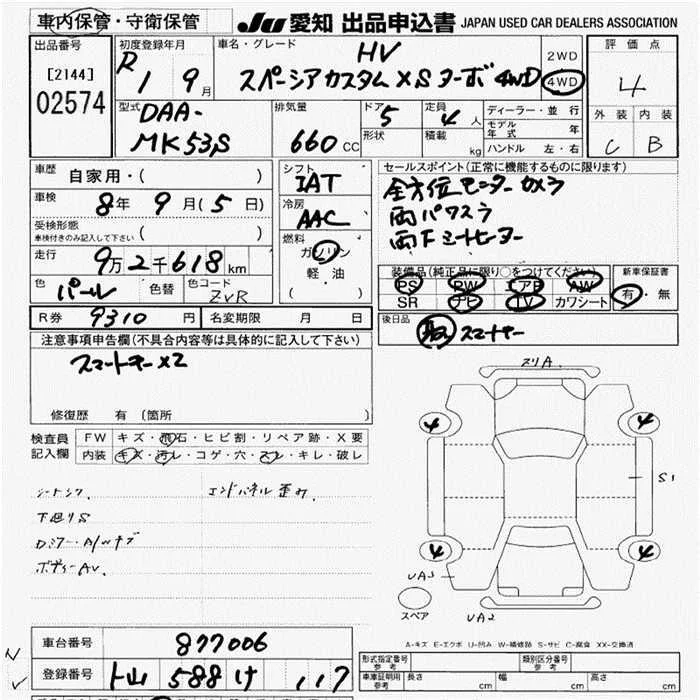 車内保管・守衛保管
JU 愛知 出品申込書 JAPAN USED CAR DEALERS ASSOCIATION
出品番号
[2144]
02574
初度登録年月
R1 9月
車名・グレード
HV
スペーシアカスタム XS ターボ 4WD
2WD
4WD
評価点
4
外装 内装
C B
型式
DAA-
MK53S
排気量
660 CC
ドア 5
形状
定員 4 人
積載 kg
ディーラー・並行
モデル年式 年
ハンドル 左・右
車歴 自家用・( )
車検 8年 9月(5日)
受検形態
車検付きのみ記入して下さい ( )
走行 9万2千618km
色 パール 色替 色コード ZVR
シフト IAT
冷房 AAC
燃料
ガソリン
軽油
( )
セールスポイント(正常に機能するものに限ります)
全方位モニターカメラ
両パワスラ
両Fシートヒーター
装備品(純正品に限り○をつけてください)
PS PW エアB AW
SR ナビ TV カワシート
新車保証書
有・無
後日品
取 スマートキー
R券 9310円 名変期限 月 日
注意事項申告欄(不具合内容等は具体的に記入して下さい)
スマートキーX2
修復歴 有(箇所
検査員記入欄
FW キズ・飛石・ヒビ割・リペア跡・X要
内装 キズ・汚レ・コゲ・穴・スレ・キレ・破レ
エンドパネル歪み
下廻りS
ボディーAV.
スリA
4 4
S1
4 4
UA3
スペア
UA2
A-キズ E-エクボ U-凹み W-補修跡 S-サビ C-腐食 XX-交換済
車台番号 877006
登録番号 588 け 117
形式指定番号 参考 類別区分番号 参考
車庫証明用 参考 長さ cm 幅 cm 高さ cm